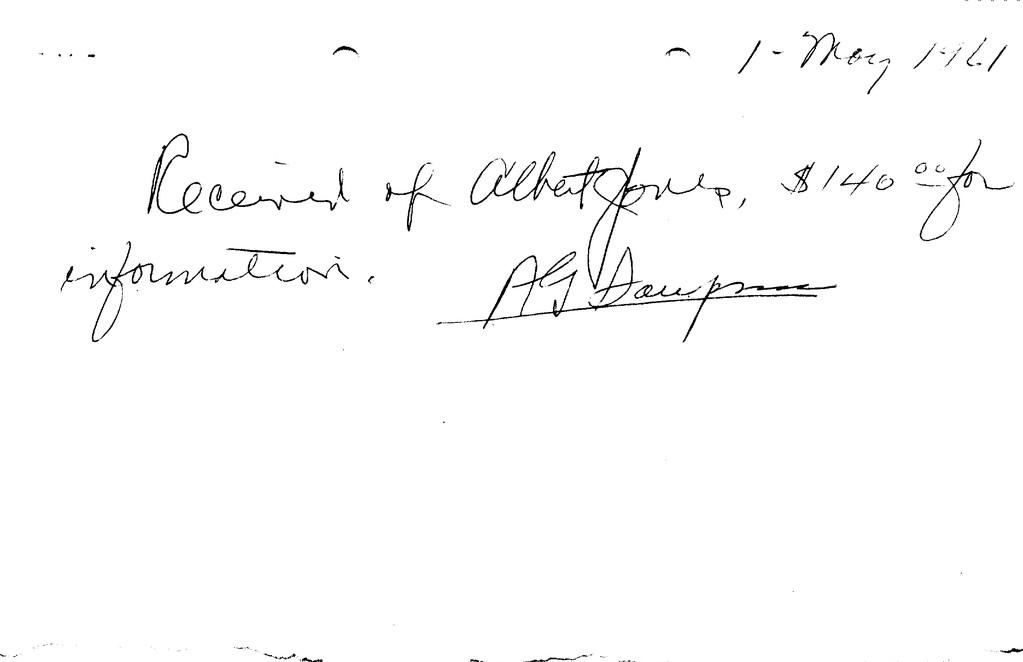 1 - May 1961
Received of Albert Jones, $140 00 for
information.
A G